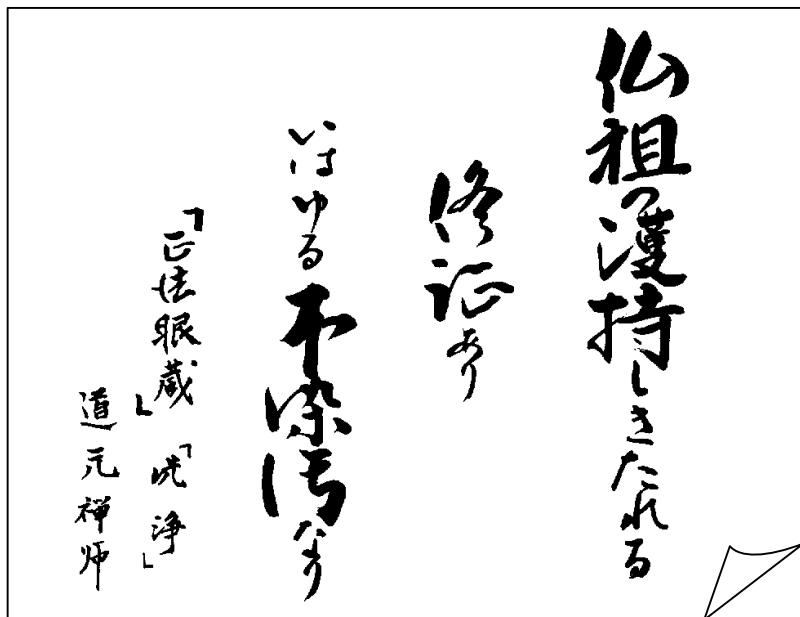 仏祖の護持しきたれる
修証あり
いはゆる不染汚なり
「正法眼蔵」「洗浄」
道元禅師